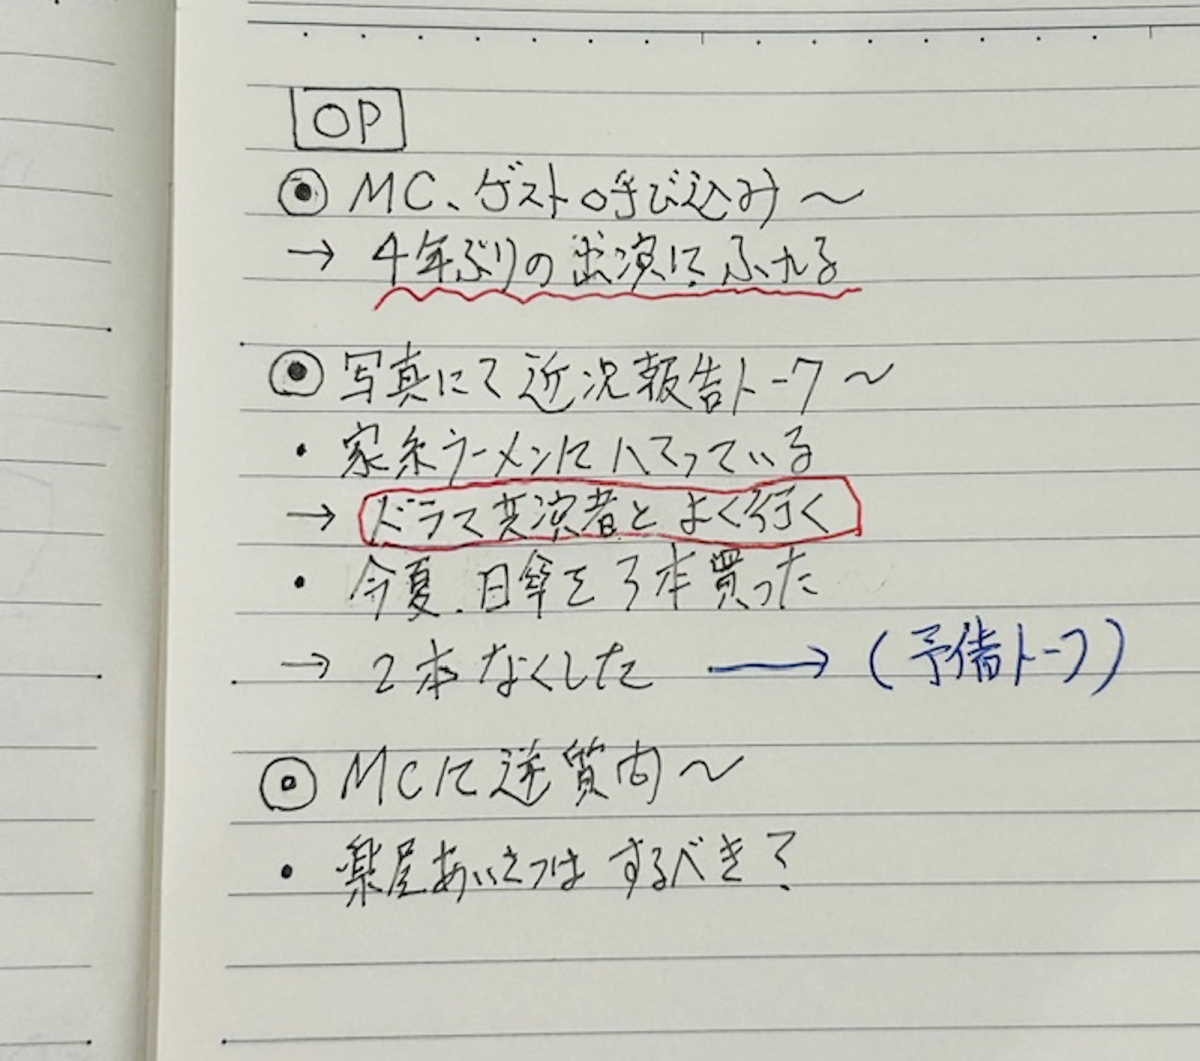 OP
◉ MC、ゲスト呼び込み〜
→ 4年ぶりの出演にふれる
◉ 写真にて近況報告トーク〜
・家系ラーメンにハマっている
→ ドラマ共演者とよく行く
・今夏、日傘を3本買った
→ 2本なくした → (予備トーク)
◉ MCに逆質問〜
・楽屋あいさつはするべき?